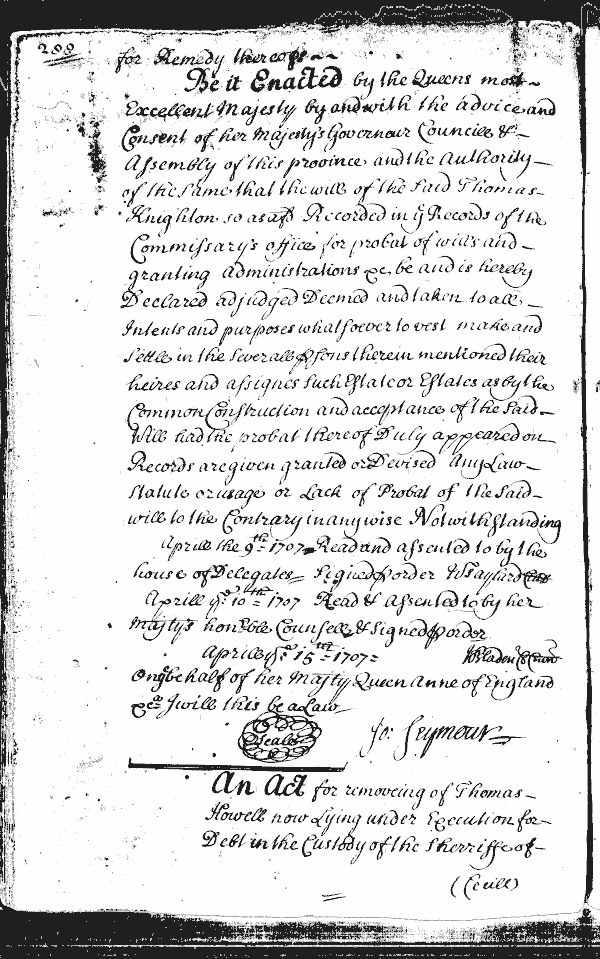 288
for Remedy thereof
Be it Enacted by the Queens most
Excellent Majesty by and with the advice and
Consent of her Majestys Governour Councile &
Assembly of this province and the Authority
of the Same that the will of the Said Thomas
Knighton so as afd Recorded in ye Records of the
Commissarys office for probat of wills and
granting administrations &c be and is hereby
Declared adjudged Deemed and taken to all
Intents and purposes whatsoever to vest make and
Settle in the Severall psons therein mentioned their
heires and assignes Such Estate or Estates as by the
Common Construction and acceptance of the Said
Will had the probat thereof Duly appeared on
Records are given granted or Devised Any Law
Statute or usage or Lack of Probat of the Said
will to the Contrary in any wise Notwithstanding
Aprill the 9th 1707 Read and assented to by the
house of Delegates Signed p order W Taylard
Aprill ye 10th 1707 Read & Assented to by her
Majtys honble Counsell & Signed p order
Aprill ye 15th 1707 W Bladen Cl Coun
On ye behalf of her Majty Queen Anne of England
&ca I will this be a Law
Seale Jo: Seymour
An Act for removeing of Thomas
Howell now Lying under Execution for
Debt in the Custody of the Sherriffe of
(Cecill)